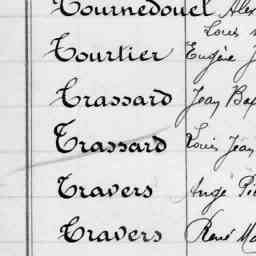 Tournedouel Alex
Louis
Tourtier Eugène J
Trassard Jean Bap
Trassard Louis Jean
Travers Ange Pie
Travers René Ma